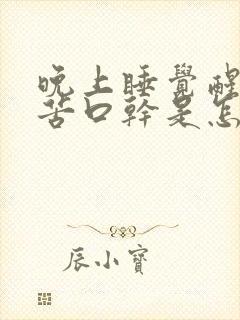 晚上睡覺醒
苦口幹是怎
辰小寶